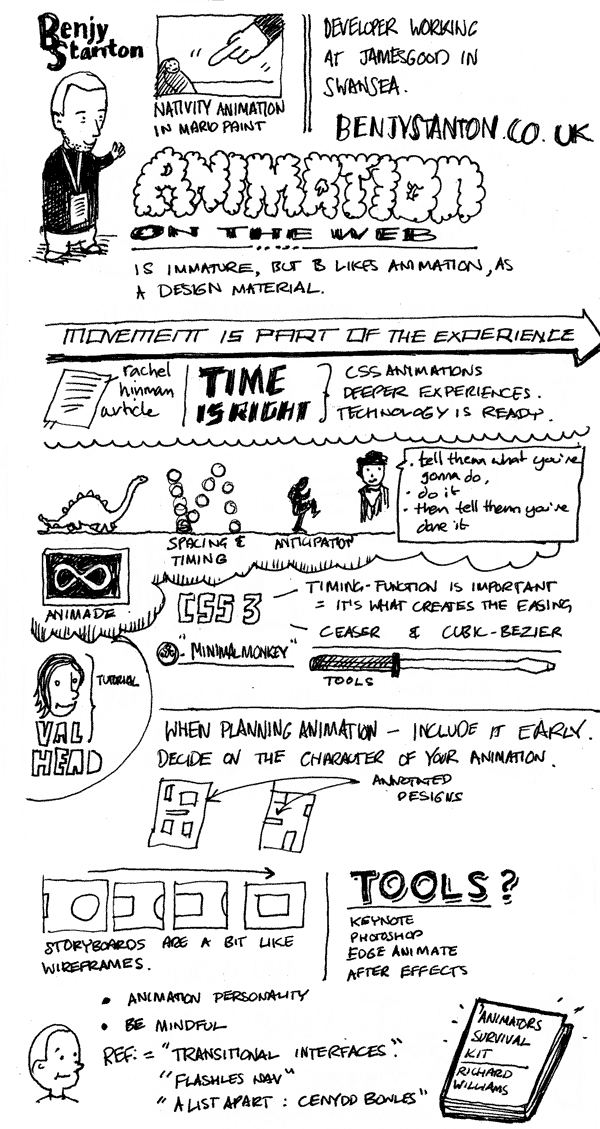 Benjy
Stanton
NATIVITY ANIMATION
IN MARIO PAINT
DEVELOPER WORKING
AT JAMESGOOD IN
SWANSEA.
BENJYSTANTON.CO.UK
ANIMATION
ON THE WEB
IS IMMATURE, BUT B LIKES ANIMATION, AS
A DESIGN MATERIAL.
MOVEMENT IS PART OF THE EXPERIENCE
rachel
hinman
article
TIME
IS RIGHT
CSS ANIMATIONS
DEEPER EXPERIENCES.
TECHNOLOGY IS READY.
• tell them what you're
gonna do,
• do it
• then tell them you've
done it
SPACING &
TIMING
ANTICIPATION
ANIMADE
CSS3
TIMING-FUNCTION IS IMPORTANT
= IT'S WHAT CREATES THE EASING
CEASER & CUBIC-BEZIER
"MINIMALMONKEY"
TOOLS
TUTORIAL
VAL
HEAD
WHEN PLANNING ANIMATION - INCLUDE IT EARLY.
DECIDE ON THE CHARACTER OF YOUR ANIMATION.
ANNOTATED
DESIGNS
STORYBOARDS ARE A BIT LIKE
WIREFRAMES.
TOOLS?
KEYNOTE
PHOTOSHOP
EDGE ANIMATE
AFTER EFFECTS
• ANIMATION PERSONALITY
• BE MINDFUL
REF: = "TRANSITIONAL INTERFACES".
"FLASHLES NAV"
"A LIST APART : CENYDD BOWLES"
ANIMATORS
SURVIVAL
KIT
RICHARD
WILLIAMS